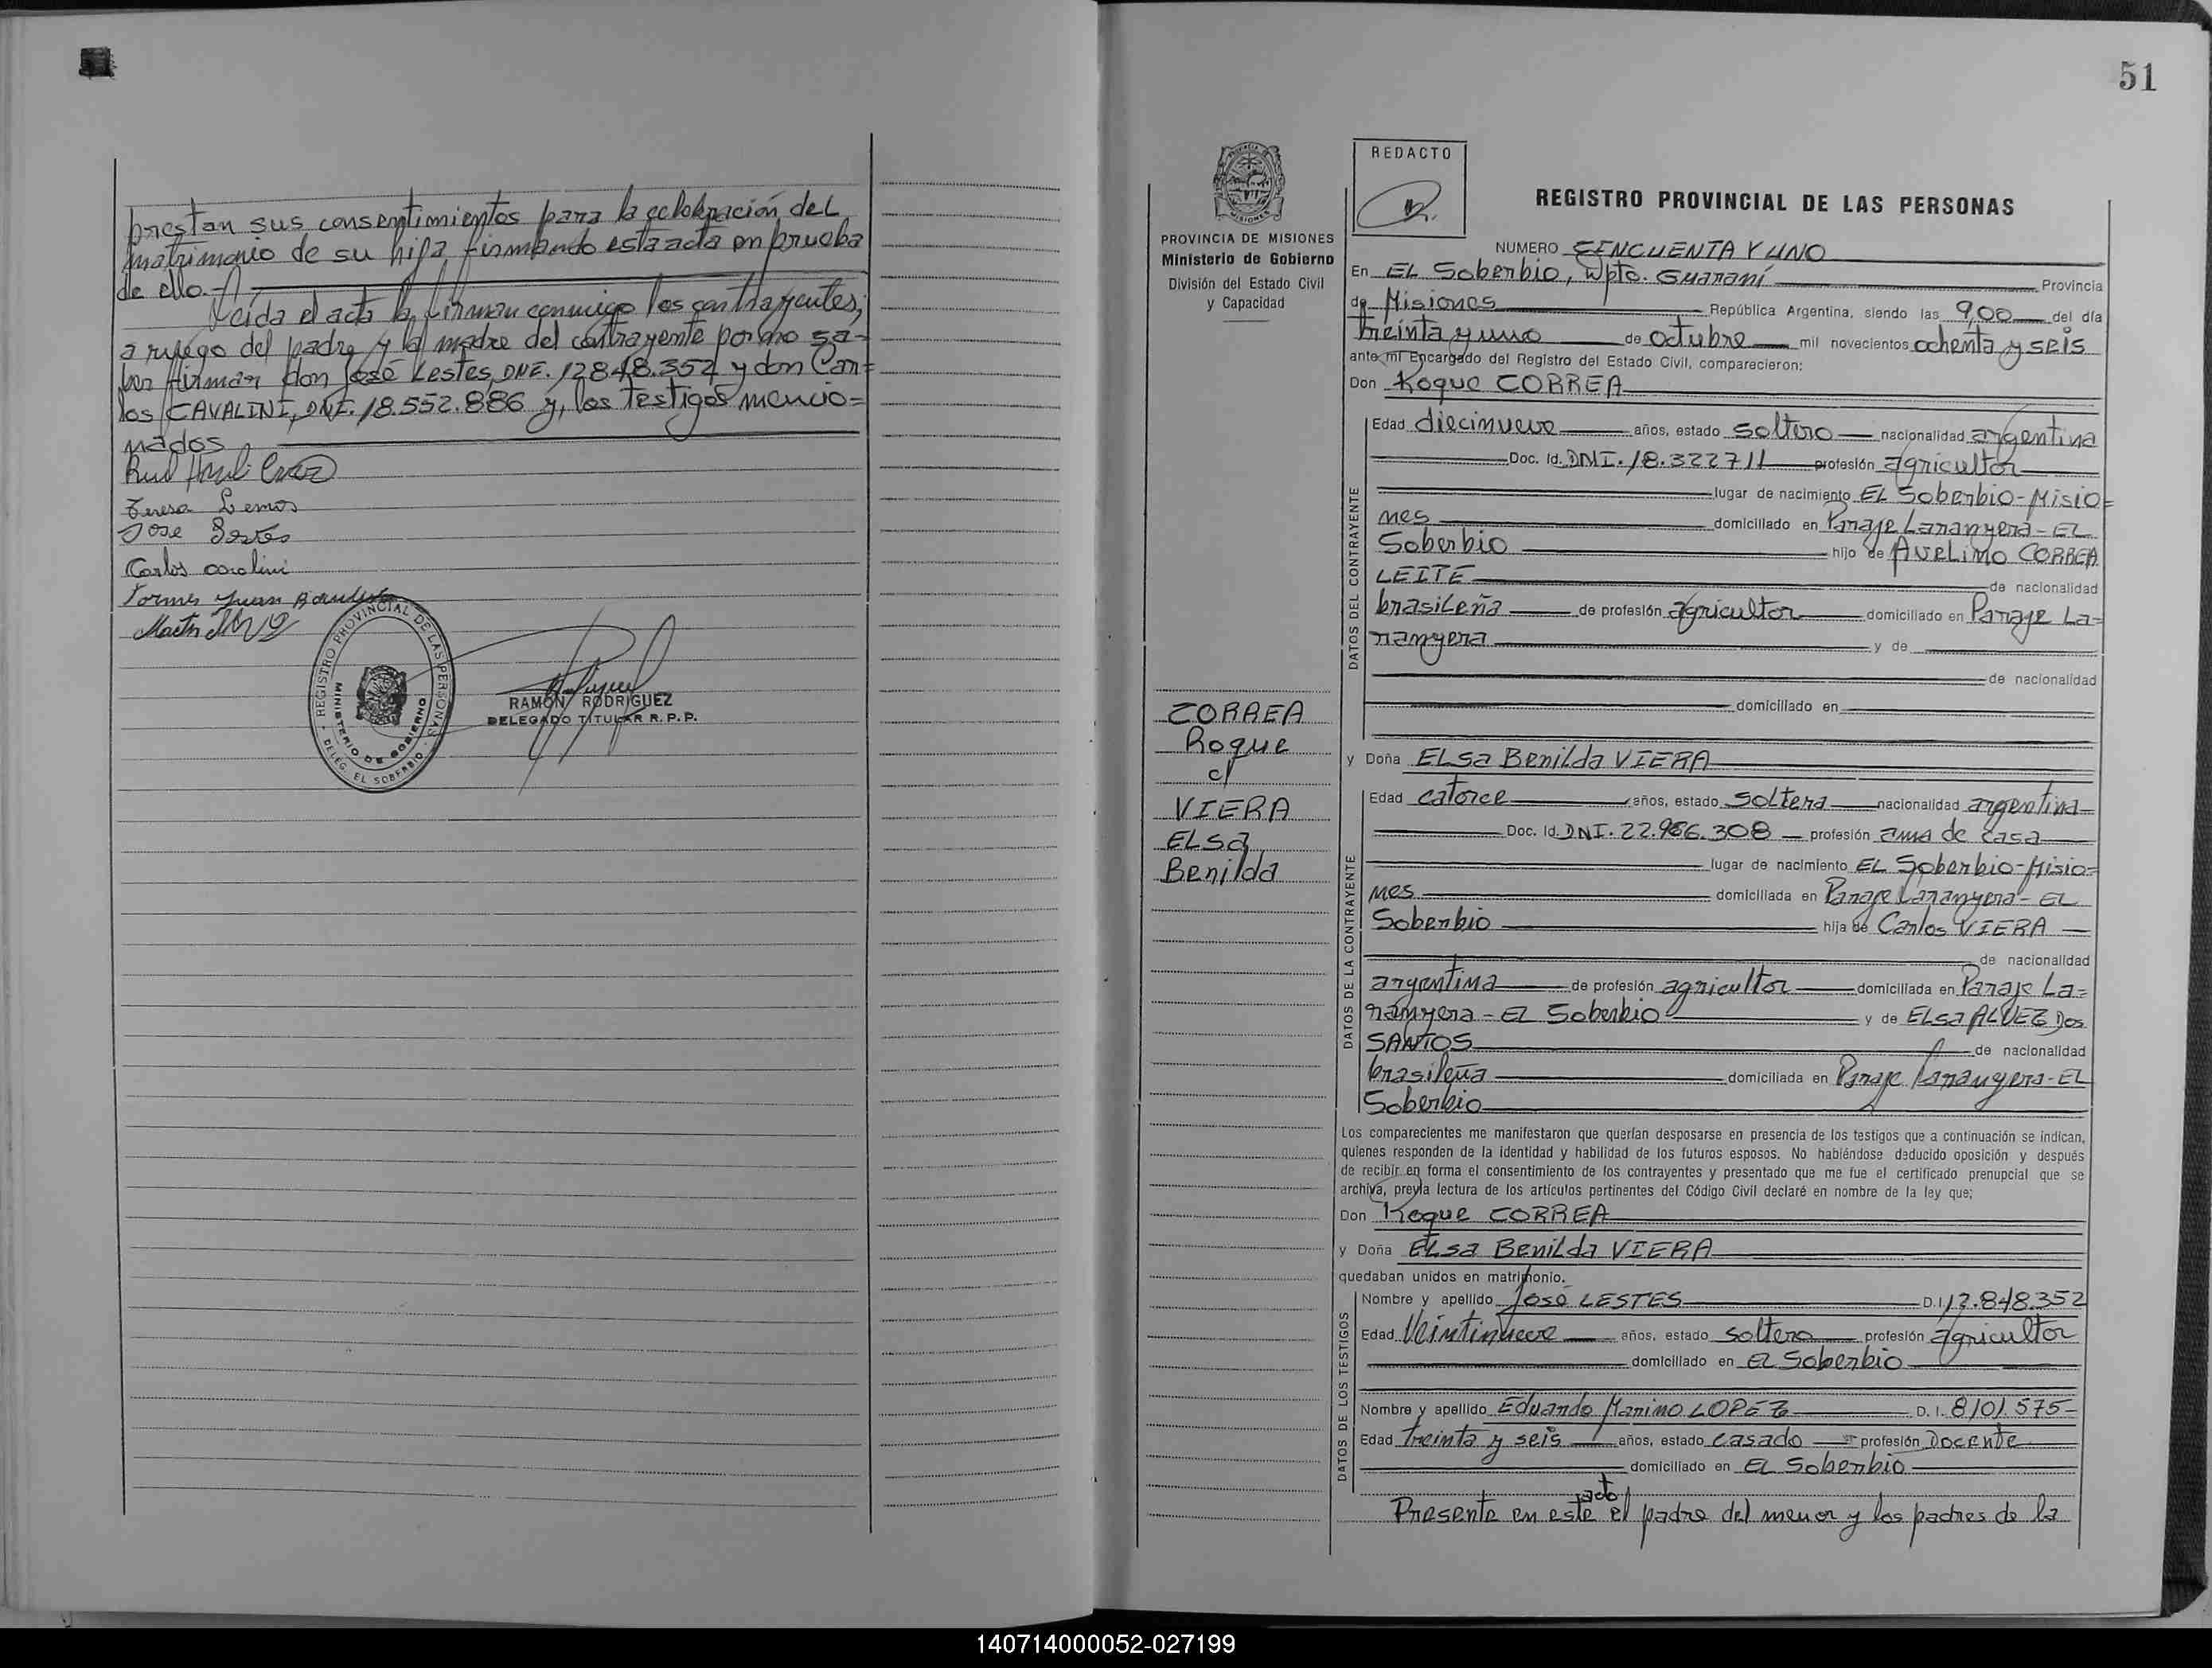 prestan sus consentimientos para la celebración del
matrimonio de su hija firmando esta acta en prueba
de ello.-
Leida el acta la firman conmigo los contrayentes,
a ruego del padre y la madre del contrayente por no sa=
ber firmar don José Lestes, DNI. 12848.352 y don Car=
los CAVALINI, DNI. 18.552.886 y, los testigos mencio=
nados
Teresa Lemos
Jose Lestes
Carlos
Juan Bautista
REGISTRO PROVINCIAL DE LAS PERSONAS
MINISTERIO DE GOBIERNO
DELEG. EL SOBERBIO
RAMÓN RODRIGUEZ
DELEGADO TITULAR R.P.P.
51
REDACTO
PROVINCIA DE MISIONES
Ministerio de Gobierno
División del Estado Civil
y Capacidad
CORREA
Roque
c/
VIERA
ELSA
Benilda
REGISTRO PROVINCIAL DE LAS PERSONAS
NUMERO CINCUENTA Y UNO
En EL Soberbio, Dpto. Guaraní Provincia
de Misiones República Argentina, siendo las 9,00 del día
treinta y uno de octubre mil novecientos ochenta y seis
ante mi Encargado del Registro del Estado Civil, comparecieron:
Don Roque CORREA
DATOS DEL CONTRAYENTE
Edad diecinueve años, estado soltero nacionalidad argentina
Doc. Id. DNI. 18.322711 profesión agricultor
lugar de nacimiento EL Soberbio-Misio=
nes domiciliado en Paraje Laranyera - EL
Soberbio hijo de AVELINO CORREA
LEITE de nacionalidad
brasileña de profesión agricultor domiciliado en Paraje La=
ranyera y de
de nacionalidad
domiciliado en
y Doña ELSA Benilda VIERA
DATOS DE LA CONTRAYENTE
Edad catorce años, estado soltera nacionalidad argentina
Doc. Id. DNI. 22.986.308 profesión ama de casa
lugar de nacimiento EL Soberbio-Misio=
nes domiciliada en Paraje Laranyera - EL
Soberbio hija de Carlos VIERA
de nacionalidad
argentina de profesión agricultor domiciliada en Paraje La=
ranyera - EL Soberbio y de ELSA ALVEZ Dos
SANTOS de nacionalidad
brasileña domiciliada en Paraje Laranyera - EL
Soberbio
Los comparecientes me manifestaron que querían desposarse en presencia de los testigos que a continuación se indican,
quienes responden de la identidad y habilidad de los futuros esposos. No habiéndose deducido oposición y después
de recibir en forma el consentimiento de los contrayentes y presentado que me fue el certificado prenupcial que se
archiva, previa lectura de los artículos pertinentes del Código Civil declaré en nombre de la ley que:
Don Roque CORREA
y Doña ELSA Benilda VIERA
quedaban unidos en matrimonio.
DATOS DE LOS TESTIGOS
Nombre y apellido José LESTES D.I. 12.848.352
Edad Veintinueve años, estado soltero profesión agricultor
domiciliado en EL Soberbio
Nombre y apellido Eduardo Marino LOPEZ D. I. 8101.575
Edad treinta y seis años, estado casado profesión Docente
domiciliado en EL Soberbio
acto
Presente en este el padre del menor y los padres de la
140714000052-027199